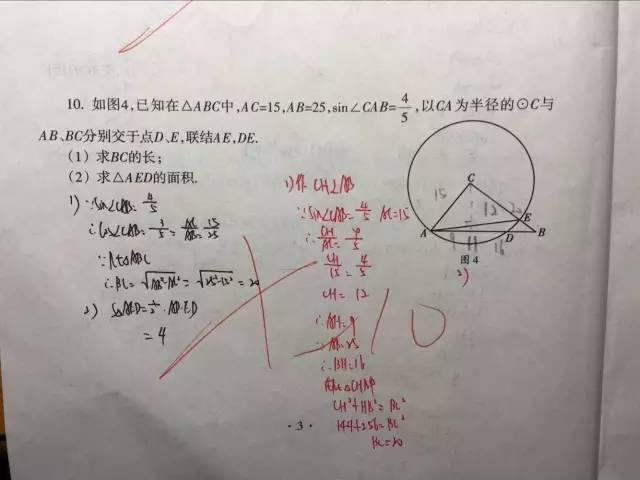 10. 如图4,已知在△ABC中,AC=15,AB=25,sin∠CAB=4/5,以CA为半径的⊙C与
AB、BC分别交于点D、E,联结AE,DE.
(1) 求BC的长;
(2) 求△AED的面积.
1) ∵sin∠CAB=4/5
∴cos∠CAB=3/5=AC/AB=15/25
∵Rt△ABC
∴BC=√AB²-AC²=√25²-15²=20
2) S△AED=1/2·AD·ED
=4
1) 作CH⊥AB
∵sin∠CAB=4/5 AC=15
∴CH/AC=4/5
CH/15=4/5
CH=12
∴AH=9
∵AB=25
∴BH=16
CH²+HB²=BC²
144+256=BC²
BC=20
C
15
12
20
E
A
9
H
D
B
16
图4
2)
10
·3·